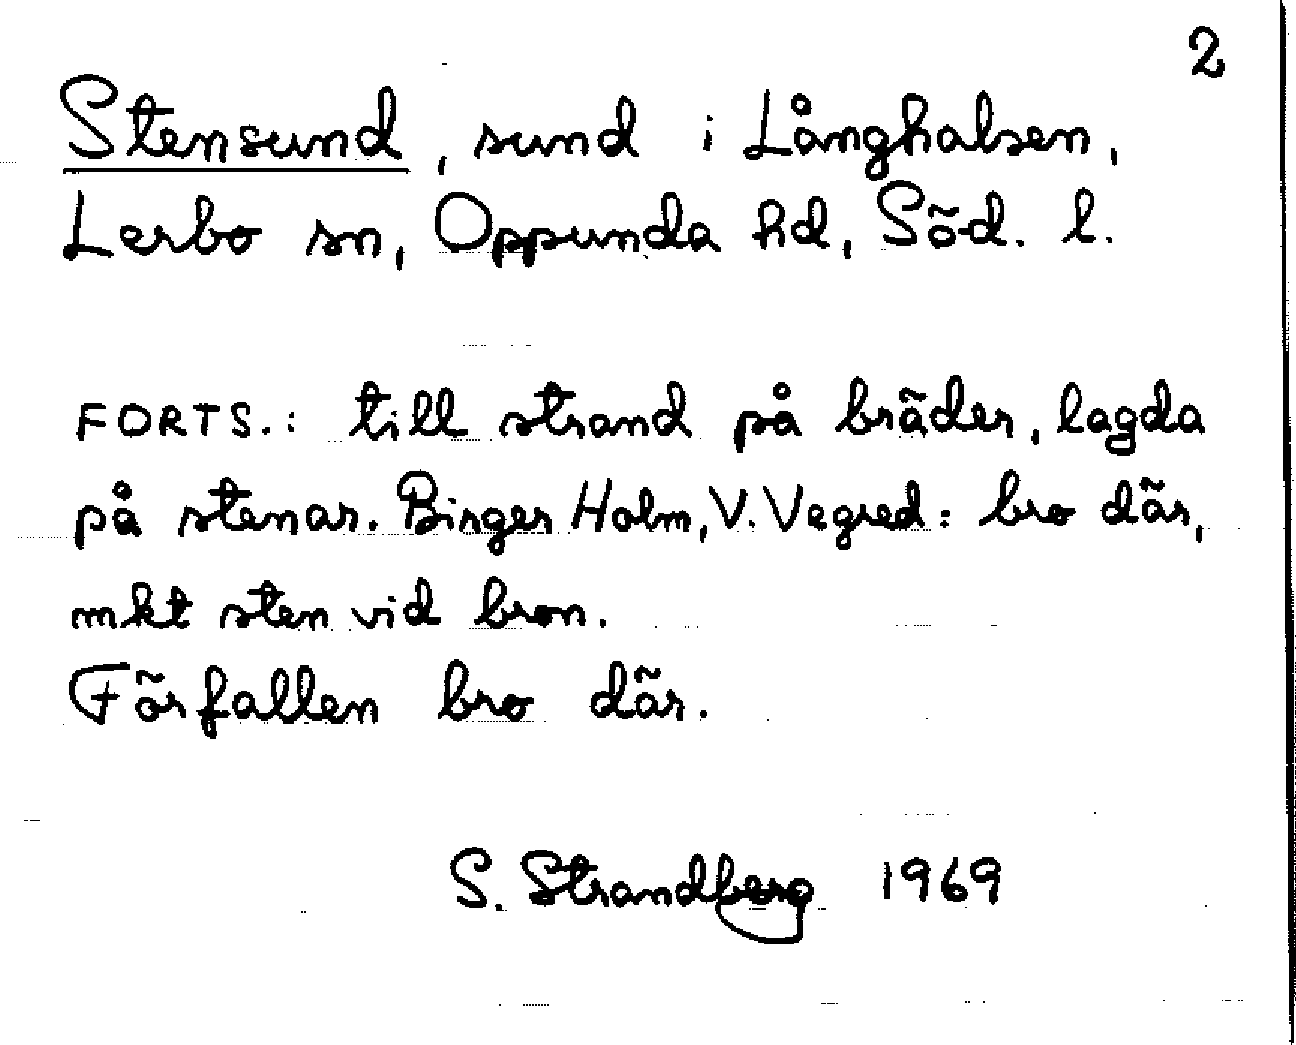 2
Stensund, sund i Långhalsen,
Lerbo sn, Oppunda hd, Söd. l.
FORTS.: till strand på bräder, lagda
på stenar. Birger Holm, V. Vegred: bro där,
mkt sten vid bron.
Förfallen bro där.
S. Strandberg 1969